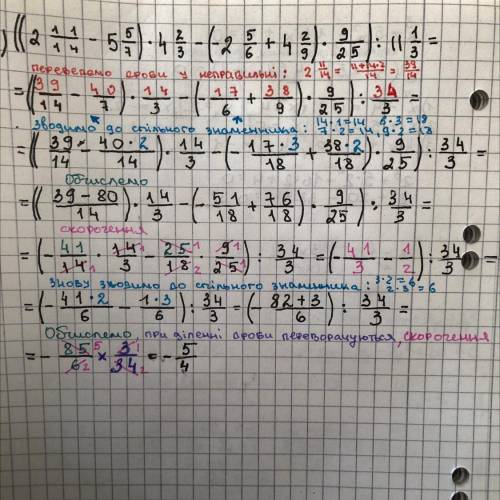 ) ((2 11/14 - 5 5/7) · 4 2/3 - (-2 5/6 + 4 2/9) · 9/25) : 11 1/3 =
переведемо дроби у неправильні: 2 11/14 = (11+14·2)/14 = 39/14
= ((39/14 - 40/7) · 14/3 - (-17/6 + 38/9) · 9/25) : 34/3 =
зводимо до спільного знаменника: 14·1=14, 6·3=18
7·2=14, 9·2=18
= ((39/14 - 40·2/14) · 14/3 - (-17·3/18 + 38·2/18) · 9/25) : 34/3 =
Обчислемо
= ((39-80)/14 · 14/3 - (-51/18 + 76/18) · 9/25) : 34/3 =
скорочення
= (-41/14 1 · 14 1/3 - 25 1/18 2 · 9 1/25 1) : 34/3 = (-41/3 - 1/2) : 34/3 =
знову зводимо до спільного знаменника: 3·2=6
2·3=6
= (-41·2/6 - 1·3/6) : 34/3 = (-(82+3)/6) : 34/3 =
Обчислемо при діленні дроби перевертаються, скорочення
= - 85 5/6 2 × 3 1/34 2 = - 5/4